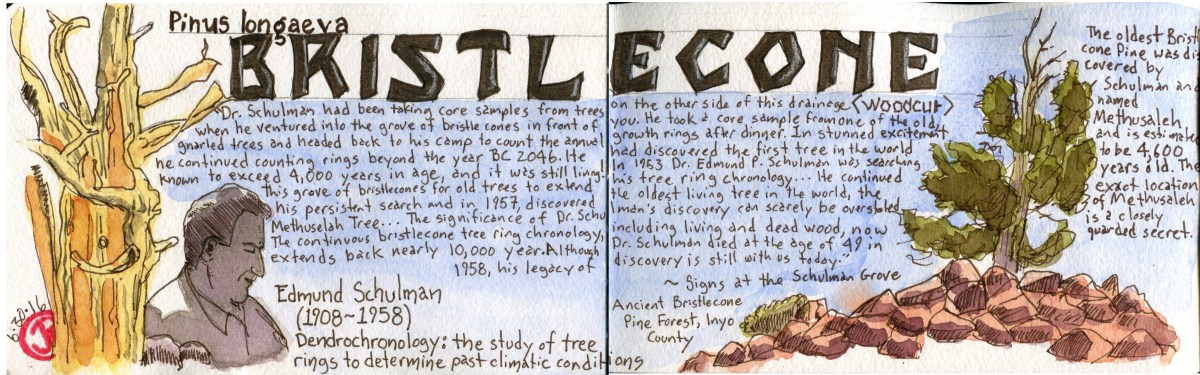 Pinus longaeva
BRISTLECONE
"Dr. Schulman had been taking core samples from trees on the other side of this drainage (Woodcut)
when he ventured into the grove of bristle cones in front of you. He took a core sample from one of the old,
gnarled trees and headed back to his camp to count the annual growth rings after dinner. In stunned excitement
he continued counting rings beyond the year BC 2046. He had discovered the first tree in the world
known to exceed 4,000 years in age, and it was still living! In 1953 Dr. Edmund P. Schulman was searching
this grove of bristlecones for old trees to extend his tree ring chronology... He continued
his persistent search and in 1957, discovered the oldest living tree in the world, the
Methuselah Tree... The significance of Dr. Schulman's discovery can scarely be overstated.
The continuous bristlecone tree ring chronology, including living and dead wood, now
extends back nearly 10,000 year. Although Dr. Schulman died at the age of 49 in
1958, his legacy of discovery is still with us today."
~ Signs at the Schulman Grove
Edmund Schulman
(1908~1958)
Dendrochronology: the study of tree
rings to determine past climatic conditions
Ancient Bristlecone
Pine Forest, Inyo
County
The oldest Bristl
cone Pine was dis
covered by
Schulman and
named
Methusaleh
and is estimate
to be 4,600
years old. The
exact location
of Methusaleh
is a closely
guarded secret.
6·30·16